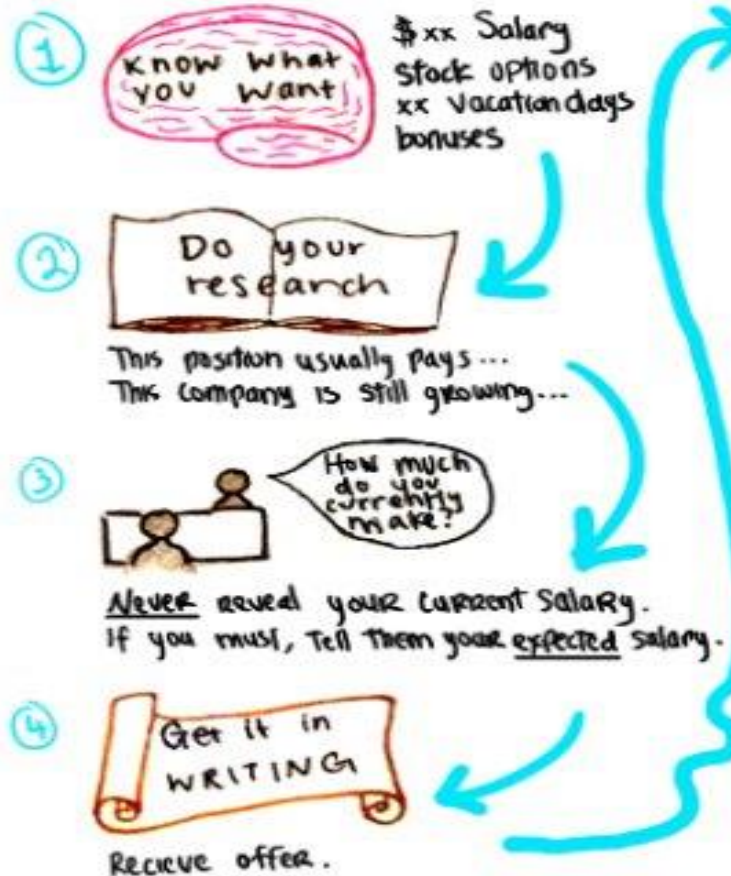 1
Know What
you want
$xx Salary
stock options
xx vacation days
bonuses
2
Do your
research
This position usually pays...
This company is still growing...
3
How much
do you
currently
make?
Never reveal your current salary.
If you must, Tell Them your expected salary.
4
Get it in
WRITING
Recieve offer.